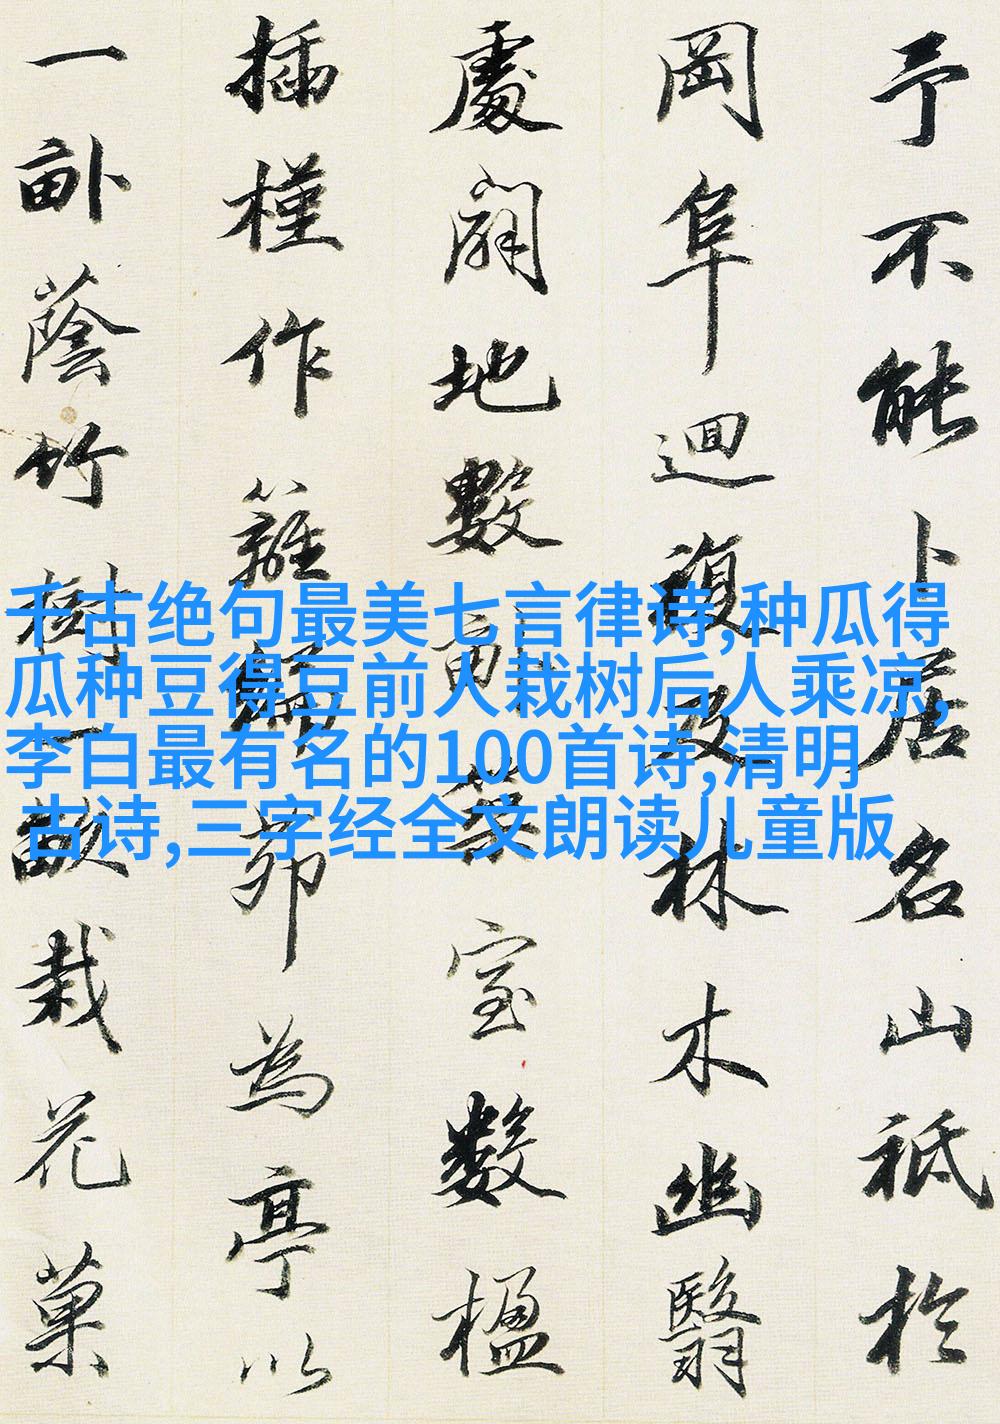 予不能卜居名山祗於
岡阜迴複及林木幽翳
處闢地數畝築室數楹
插槿作籬編茆為亭以
一畝蔭竹樹一畝栽花菓
千古绝句最美七言律诗,种瓜得
瓜种豆得豆前人栽树后人乘凉,
李白最有名的100首诗,清明
古诗,三字经全文朗读儿童版